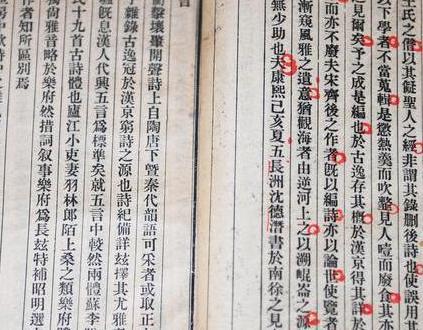 王氏之僭以其儗聖人之經非謂其錄刪後詩也使誤用其
以下學者不當蒐輯是懲熱羹而吹虀見人噎而廢食其亦
見爾矣予之成是編也於古逸存其概於漢京得其詳於
而亦不廢夫宋齊後之作者既以編詩亦以論世使覽者
漸窺風雅之遺意猶觀海者由逆河上之以溯崐崙之源
無少助也夫康熙己亥夏五長洲沈德潛書於南徐之見
目
衢擊壤肇開聲詩上自陶唐下暨秦代韻語可采者或取正
雜錄古逸冠於漢京窮詩之源也詩紀備詳茲擇其尤雅
騷既息漢人代興五言爲標準矣就五言中較然兩體蘇李
氏十九首古詩體也廬江小吏妻羽林郎陌上桑之類樂府體
獨尚雅音略於樂府然措詞叙事樂府爲長茲特補昭明選
作者知所區別焉